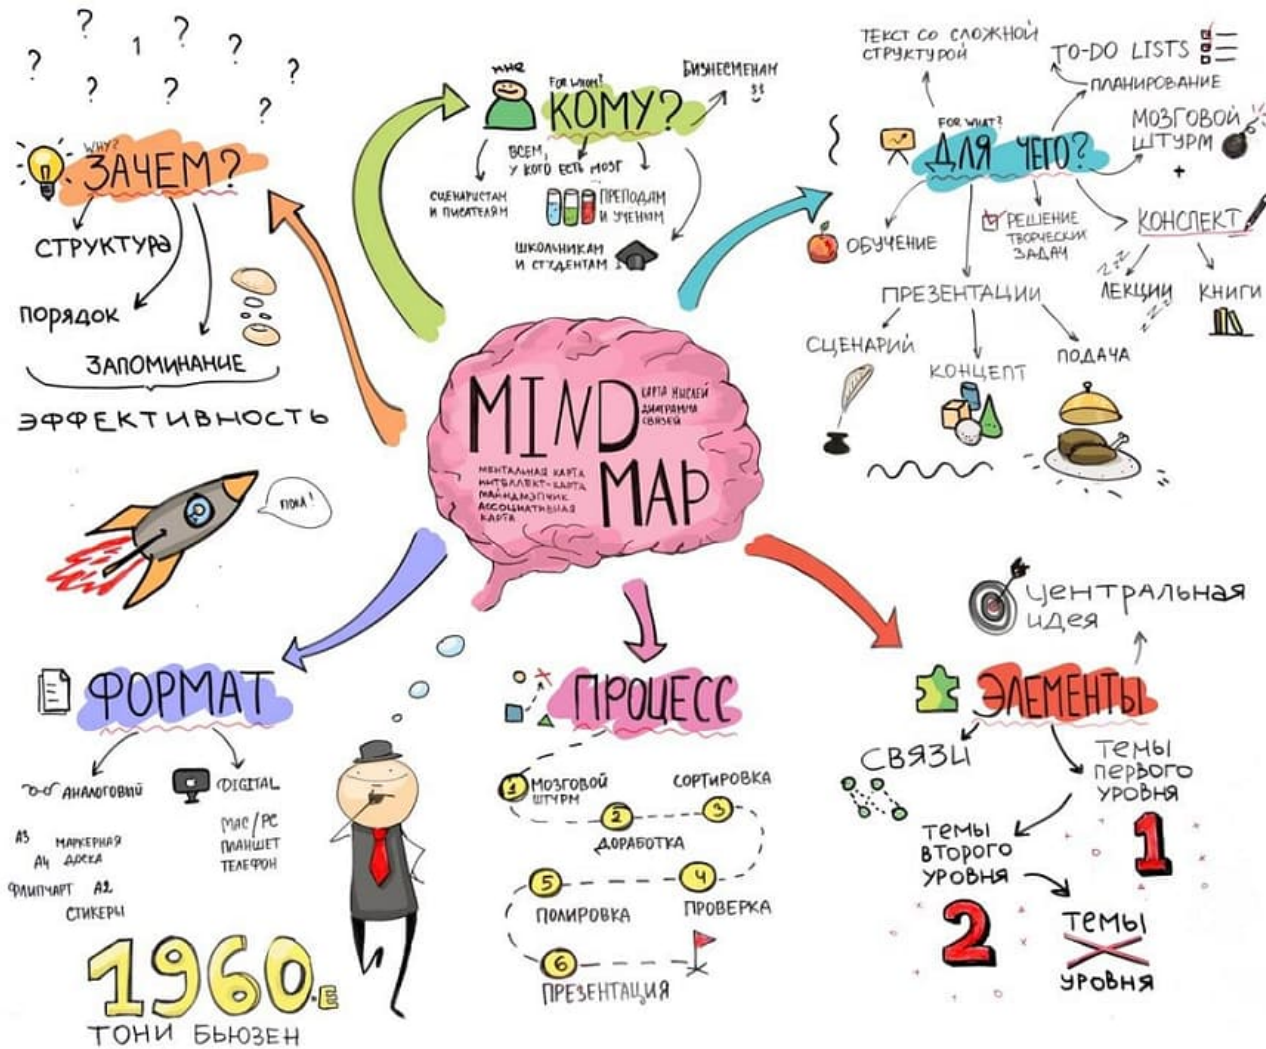 ? ? 1 ? ? ? ? ? ?
WHY?
ЗАЧЕМ?
СТРУКТУРА
ПОРЯДОК
ЗАПОМИНАНИЕ
ЭФФЕКТИВНОСТЬ
ПОКА!
МНЕ
FOR WHOM?
КОМУ?
БИЗНЕСМЕНАМ
ВСЕМ,
У КОГО ЕСТЬ МОЗГ
СЦЕНАРИСТАМ
И ПИСАТЕЛЯМ
ПРЕПОДАМ
И УЧЕНЫМ
ШКОЛЬНИКАМ
И СТУДЕНТАМ
FOR WHAT?
ДЛЯ ЧЕГО?
ТЕКСТ СО СЛОЖНОЙ
СТРУКТУРОЙ
TO-DO LISTS
ПЛАНИРОВАНИЕ
МОЗГОВОЙ
ШТУРМ
+
КОНСПЕКТ
ZZZ
ЛЕКЦИИ
ZZZ
КНИГИ
РЕШЕНИЕ
ТВОРЧЕСКИХ
ЗАДАЧ
ОБУЧЕНИЕ
ПРЕЗЕНТАЦИИ
СЦЕНАРИЙ
КОНЦЕПТ
ПОДАЧА
MIND
MAP
КАРТА МЫСЛЕЙ
ДИАГРАММА
СВЯЗЕЙ
МЕНТАЛЬНАЯ КАРТА
ИНТЕЛЛЕКТ-КАРТА
МАЙНДМЭПЧИК
АССОЦИАТИВНАЯ
КАРТА
ФОРМАТ
АНАЛОГОВЫЙ
А3
МАРКЕРНАЯ
ДОСКА
А4
ФЛИПЧАРТ
А2
СТИКЕРЫ
DIGITAL
MAC/PC
ПЛАНШЕТ
ТЕЛЕФОН
1960.Е
ТОНИ БЬЮЗЕН
ПРОЦЕСС
1
МОЗГОВОЙ
ШТУРМ
2
ДОРАБОТКА
СОРТИРОВКА
3
4
ПРОВЕРКА
5
ПОЛИРОВКА
6
ПРЕЗЕНТАЦИЯ
ЭЛЕМЕНТЫ
ЦЕНТРАЛЬНАЯ
ИДЕЯ
СВЯЗИ
ТЕМЫ
ПЕРВОГО
УРОВНЯ
1
ТЕМЫ
ВТОРОГО
УРОВНЯ
2
ТЕМЫ
X
УРОВНЯ